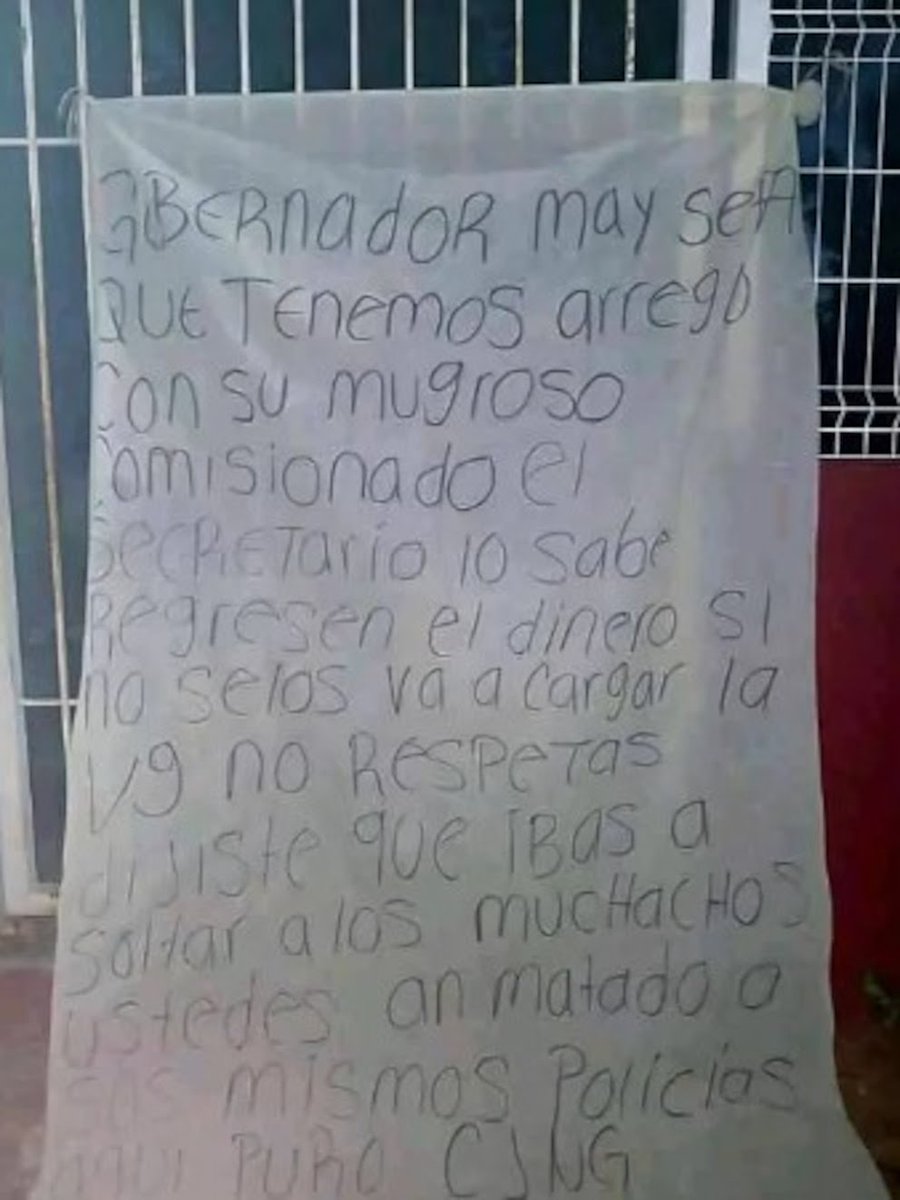 GBERNADOR MAY SERA
QUE TENEMOS arrego
Con su mugroso
Comisionado el
SECRETario lo sabe
Regresen el dinero SI
no selos va a cargar la
Vg no RESPETAS
dijiste que iBAS a
soltar a los mucHacHOS
ustedes an matado a
sus mismos Policias
Aqui PURO CJNG